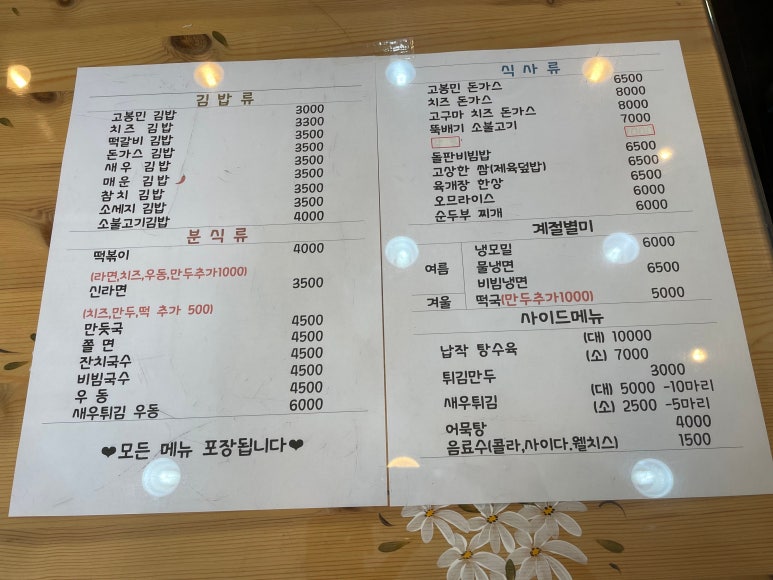 김밥류
고봉민 김밥 3000
치즈 김밥 3300
떡갈비 김밥 3500
돈가스 김밥 3500
새우 김밥 3500
매운 김밥 3500
참치 김밥 3500
소세지 김밥 3500
소불고기김밥 4000
분식류
떡볶이 4000
(라면,치즈,우동,만두추가1000)
신라면 3500
(치즈,만두,떡 추가 500)
만둣국 4500
쫄 면 4500
잔치국수 4500
비빔국수 4500
우 동 4500
새우튀김 우동 6000
❤모든 메뉴 포장됩니다❤
식사류
고봉민 돈가스 6500
치즈 돈가스 8000
고구마 치즈 돈가스 8000
뚝배기 소불고기 7000
돌판비빔밥 6500
고상한 쌈(제육덮밥) 6500
육개장 한상 6500
오므라이스 6000
순두부 찌개 6000
계절별미
여름
냉모밀 6000
물냉면 6500
비빔냉면
겨울 떡국(만두추가1000) 5000
사이드메뉴
납작 탕수육 (대) 10000
(소) 7000
튀김만두 3000
새우튀김 (대) 5000 -10마리
(소) 2500 -5마리
어묵탕 4000
음료수(콜라,사이다.웰치스) 1500